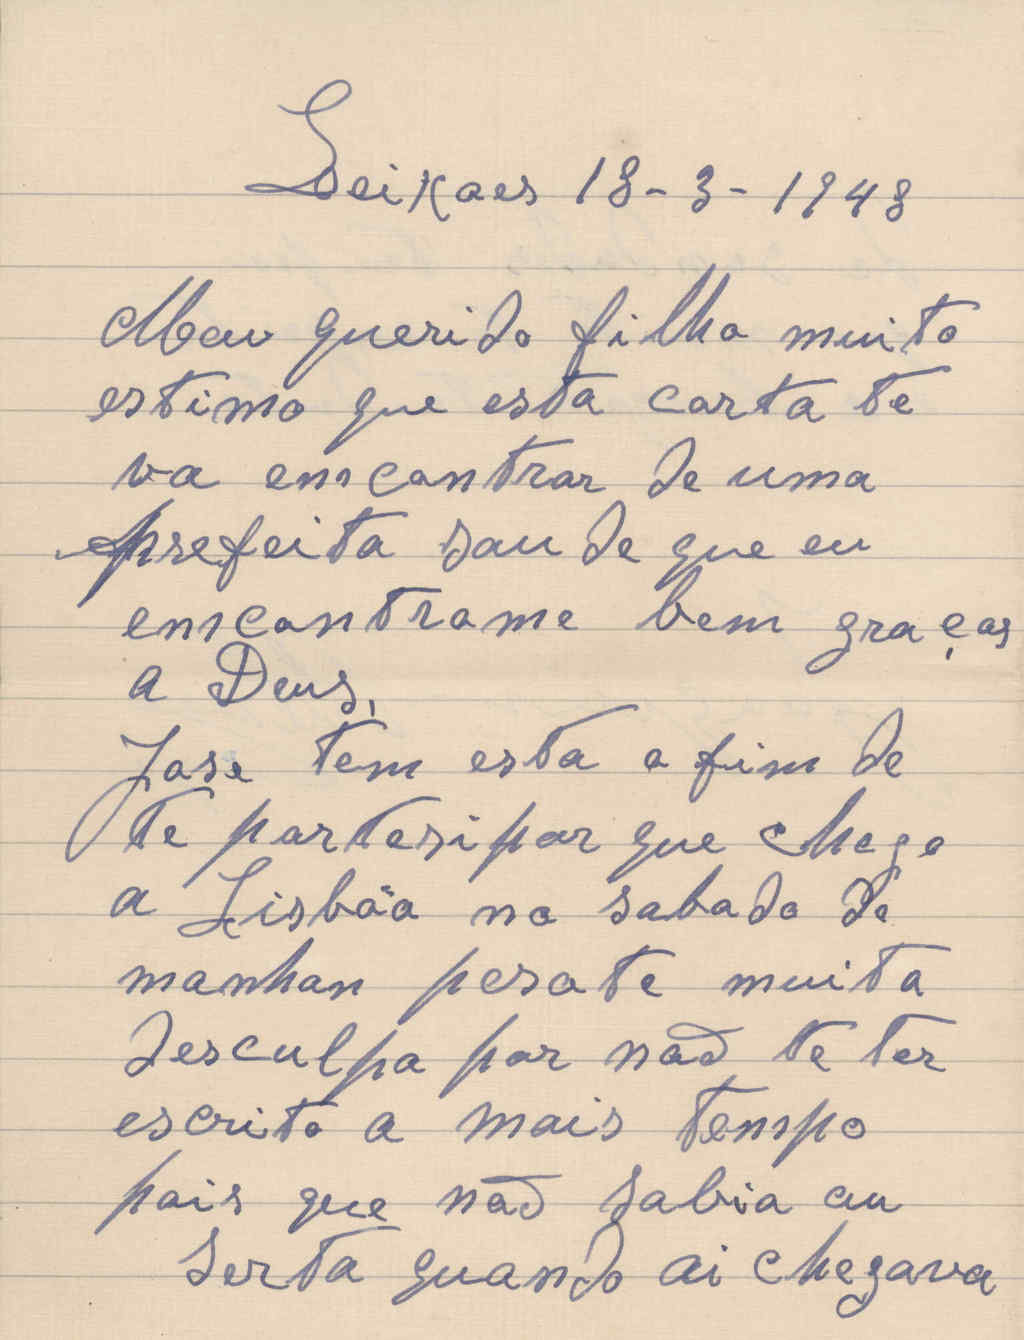 Leixoes 18-3-1948
Meu querido filho muito
estimo que esta carta te
va emcontrar de uma
prefeita saude que eu
emcontrome bem graças
a Deus,
Jose tem esta o fim de
te partesipar que chego
a Lisbôa no sabado de
manhan pesote muita
desculpa por não te ter
escrito a mais tempo
pois que não sabia au
serta quando ai chegava